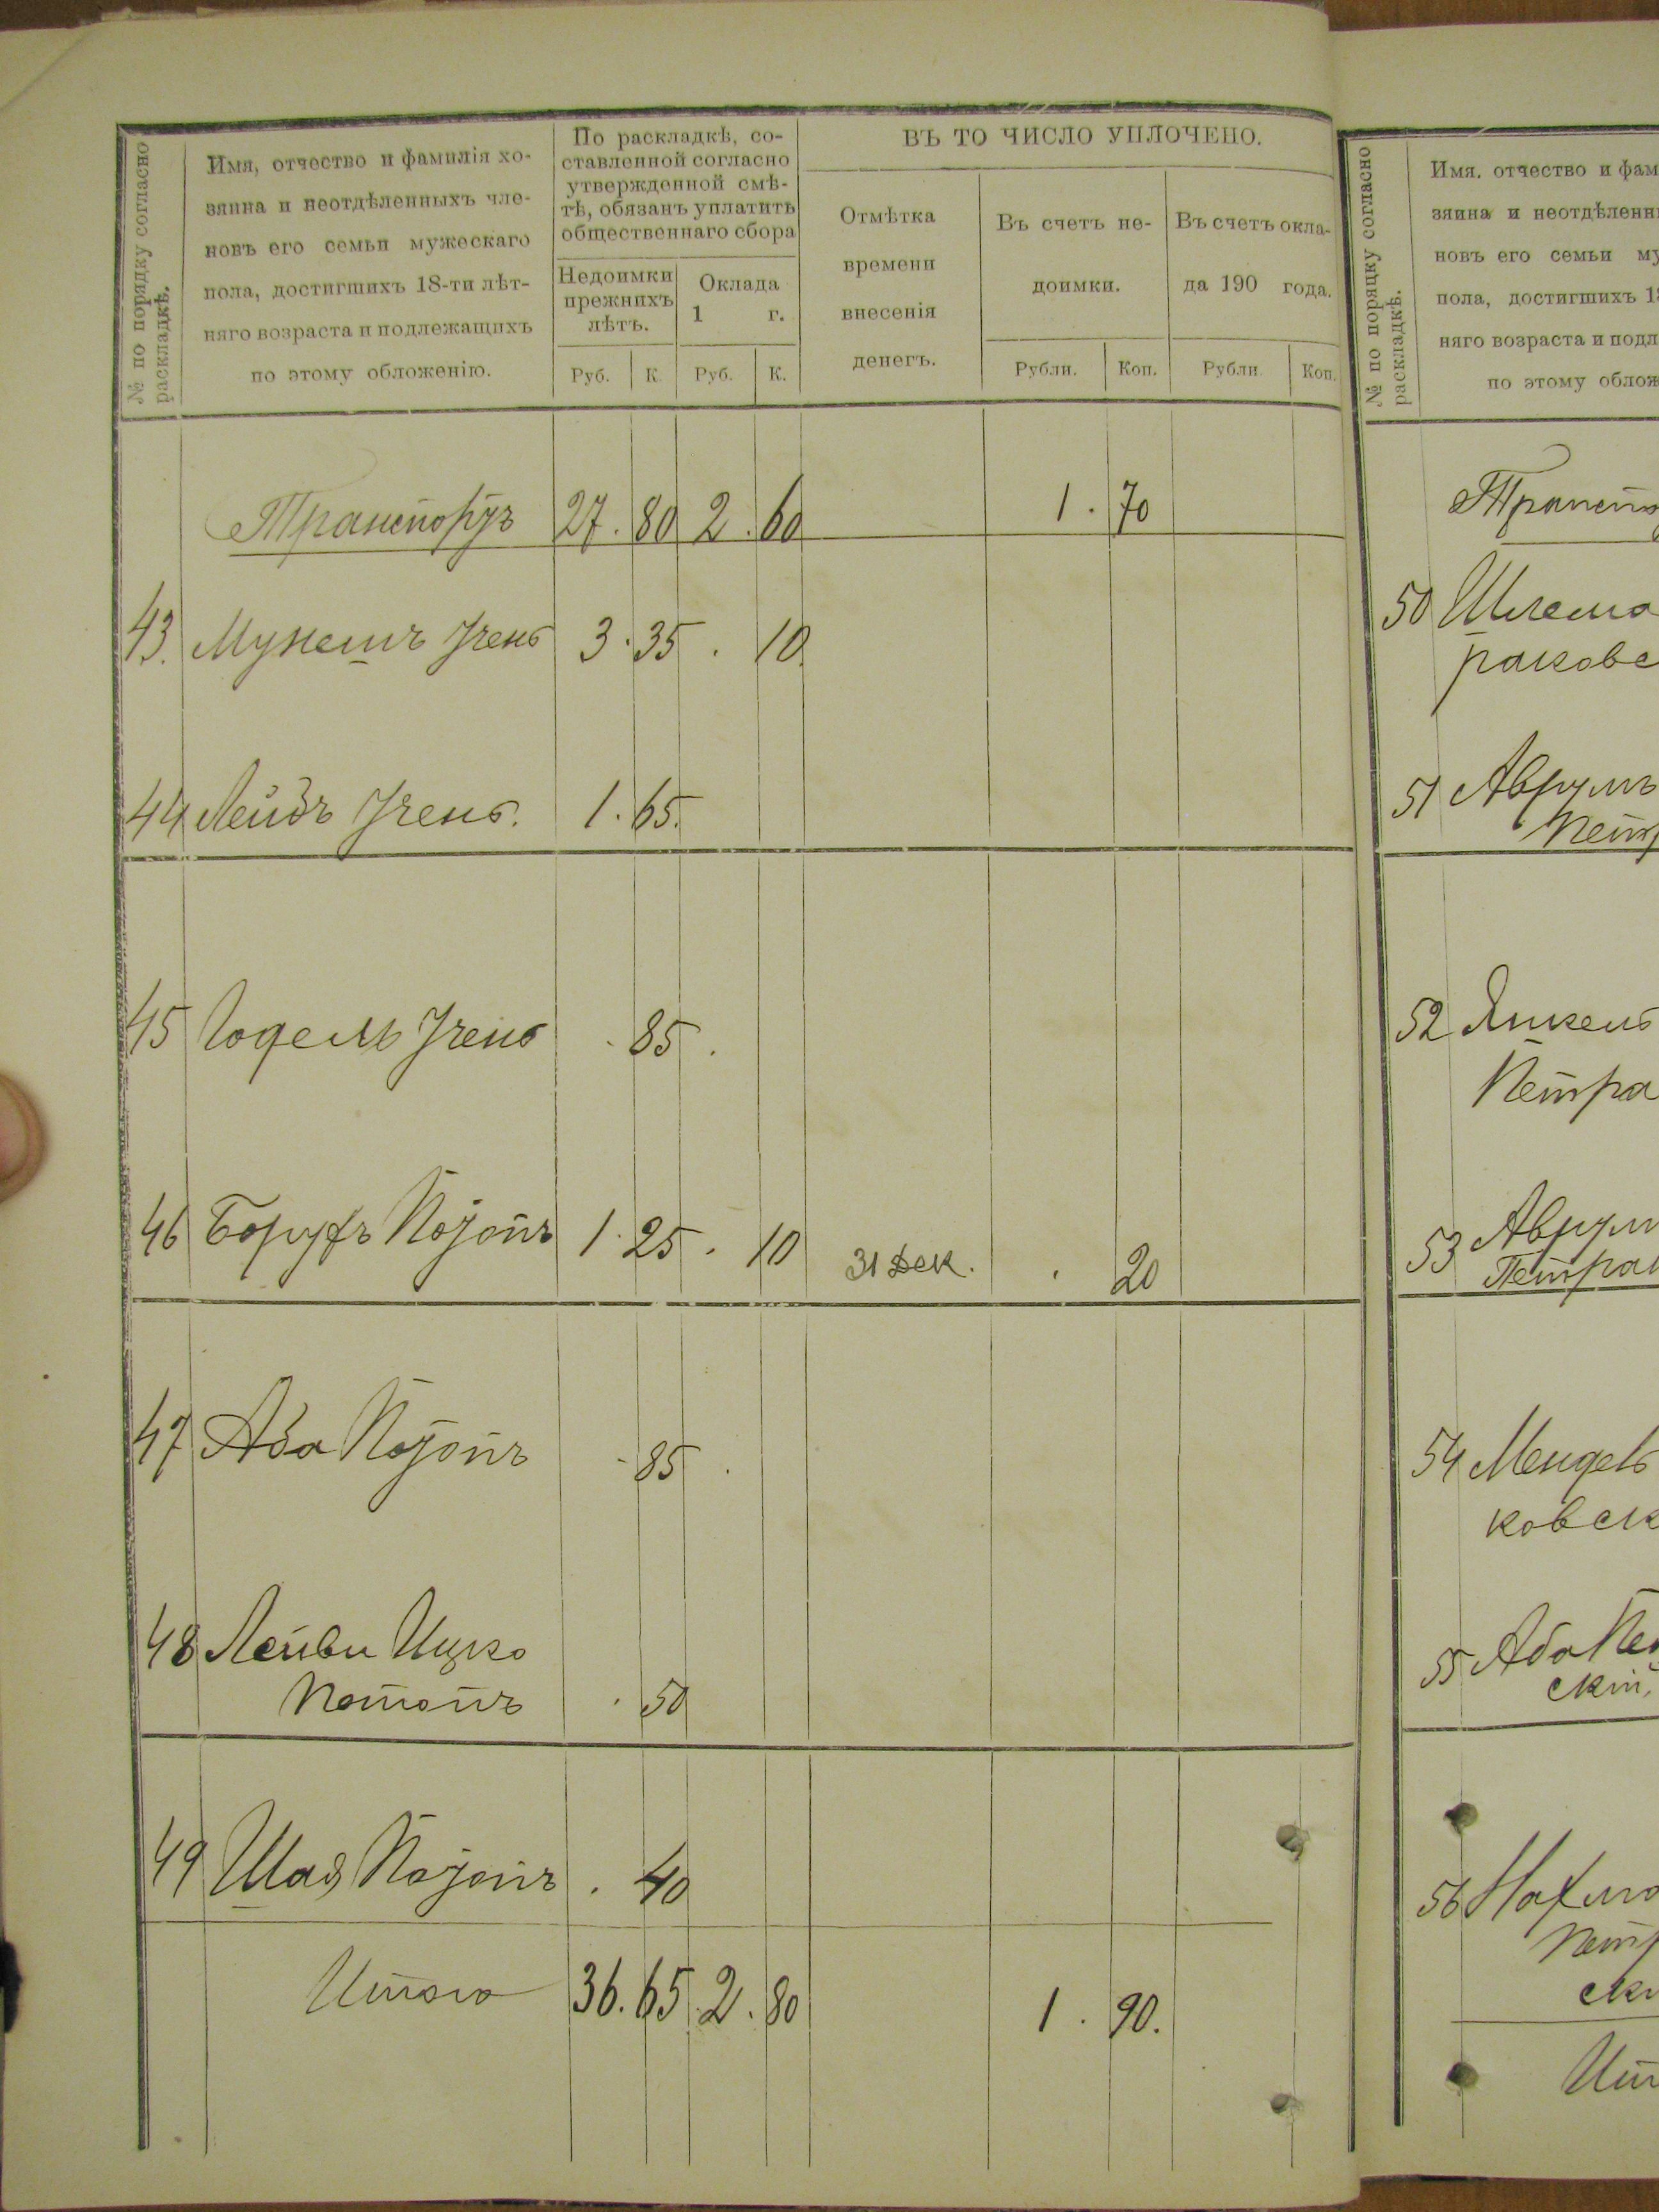 № по порядку согласно
раскладкѣ.
Имя, отчество и фамилія хо-
зяина и неотдѣленныхъ чле-
новъ его семьи мужескаго
пола, достигшихъ 18-ти лѣт-
няго возраста и подлежащихъ
по этому обложенію.
По раскладкѣ, со-
ставленной согласно
утвержденной смѣ-
тѣ, обязанъ уплатить
общественнаго сбора
Недоимки
прежнихъ
лѣтъ.
Оклада
1 г.
Руб. К. Руб. К.
ВЪ ТО ЧИСЛО УПЛОЧЕНО.
Отмѣтка
времени
внесенія
денегъ.
Въ счетъ не-
доимки.
Рубли. Коп.
Въ счетъ окла-
да 190 года.
Рубли Коп.
Транспортъ 27. 80 2. 60 1. 70
43. 3. 35. 10.
44 1. 65.
45 Годель . 85.
46 Борухъ Потопъ 1. 25. 10 31 Дек. . 20
47 Аба Потопъ . 85.
48 Лейви Ицко
Потопъ . 50
49 Шая Потопъ . 40
Итого 36. 65. 2. 80 1. 90.
№ по порядку согласно
раскладкѣ.
Имя, отчество и фам
зяина и неотдѣленн
новъ его семьи му
пола, достигшихъ 18
няго возраста и подл
по этому облож
Транспо
50 Шлема
раковс
51 Аврумъ
Петр
52 Янкель
Петра
53 Аврум
Петрак
54 Мендель
ковск
55 Аба Пет
скій,
56 Нахма
Петр
ски
Ит